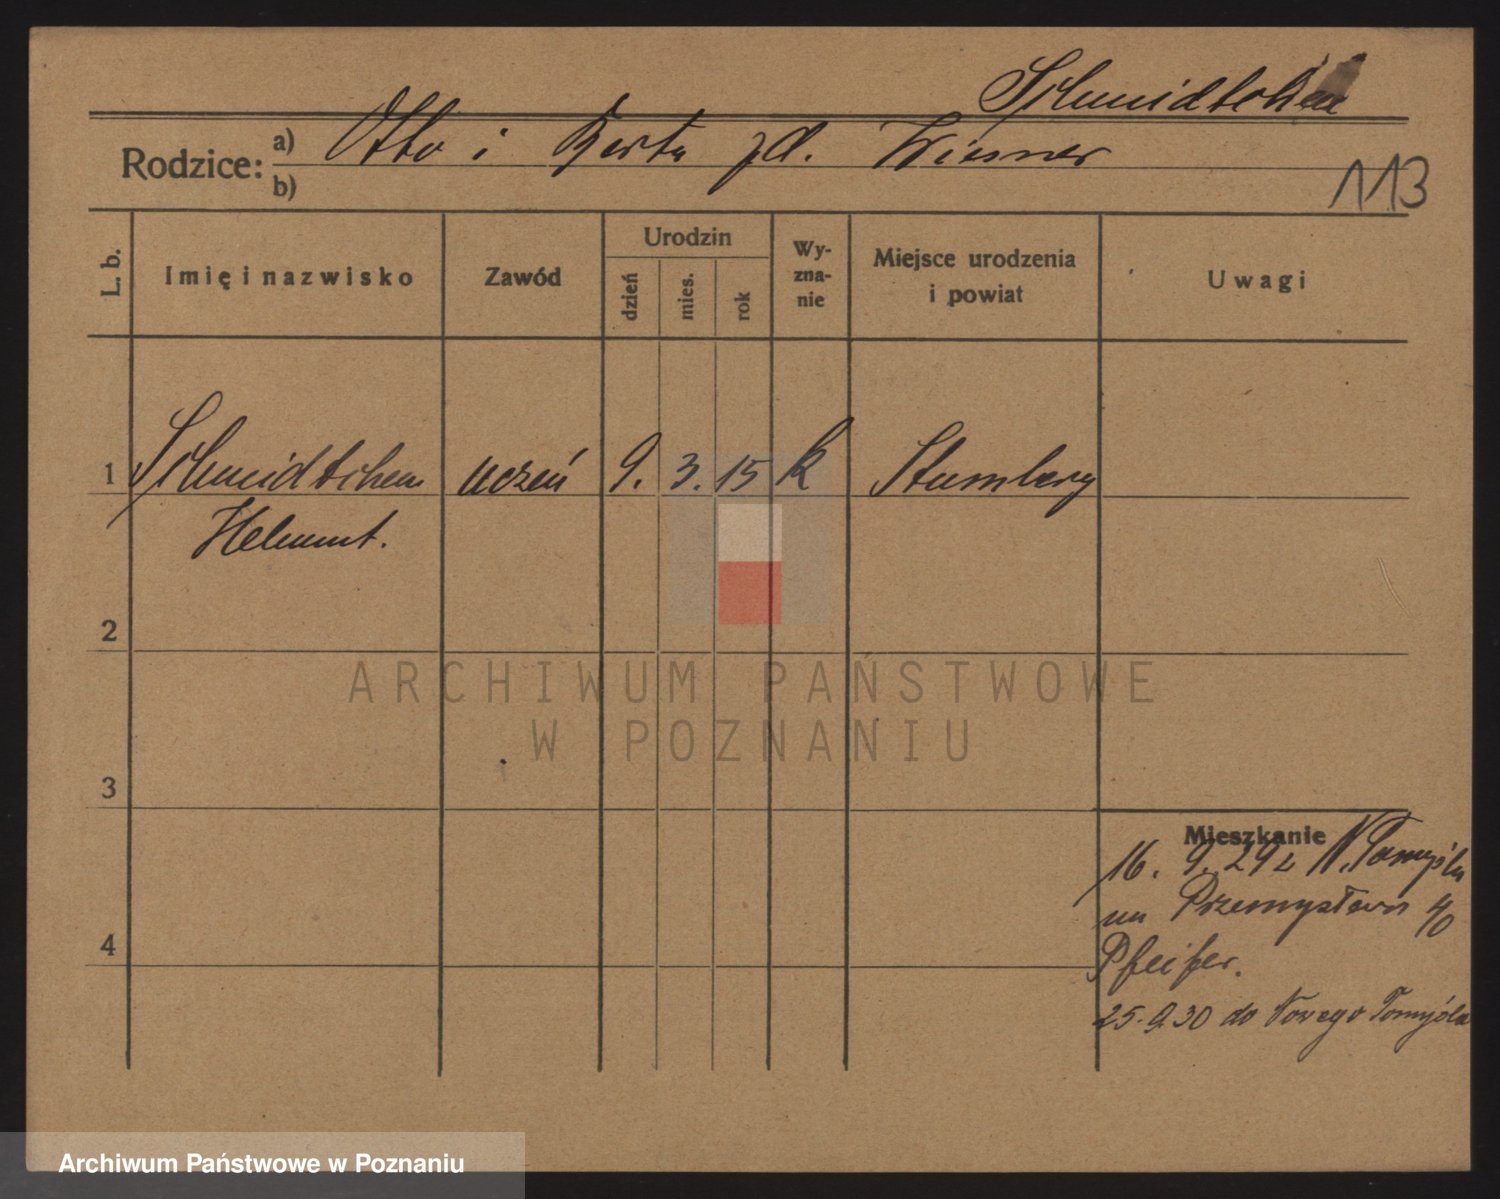 Schmidtchen
Rodzice: a) Otto i Berta zd. Wiesner
b)
113
L. b. Imię i nazwisko Zawód Urodzin dzień mies. rok Wyznanie Miejsce urodzenia i powiat Uwagi
1 Schmidtchen uczeń 9. 3. 15 k
Helmut.
2
3
4
Mieszkanie
16. 9. 29 z N. Tomyśla
na Przemysława 40
Pfeifer.
25. 9. 30 do Nowego Tomyśla
ARCHIWUM PAŃSTWOWE
W POZNANIU
Archiwum Państwowe w Poznaniu